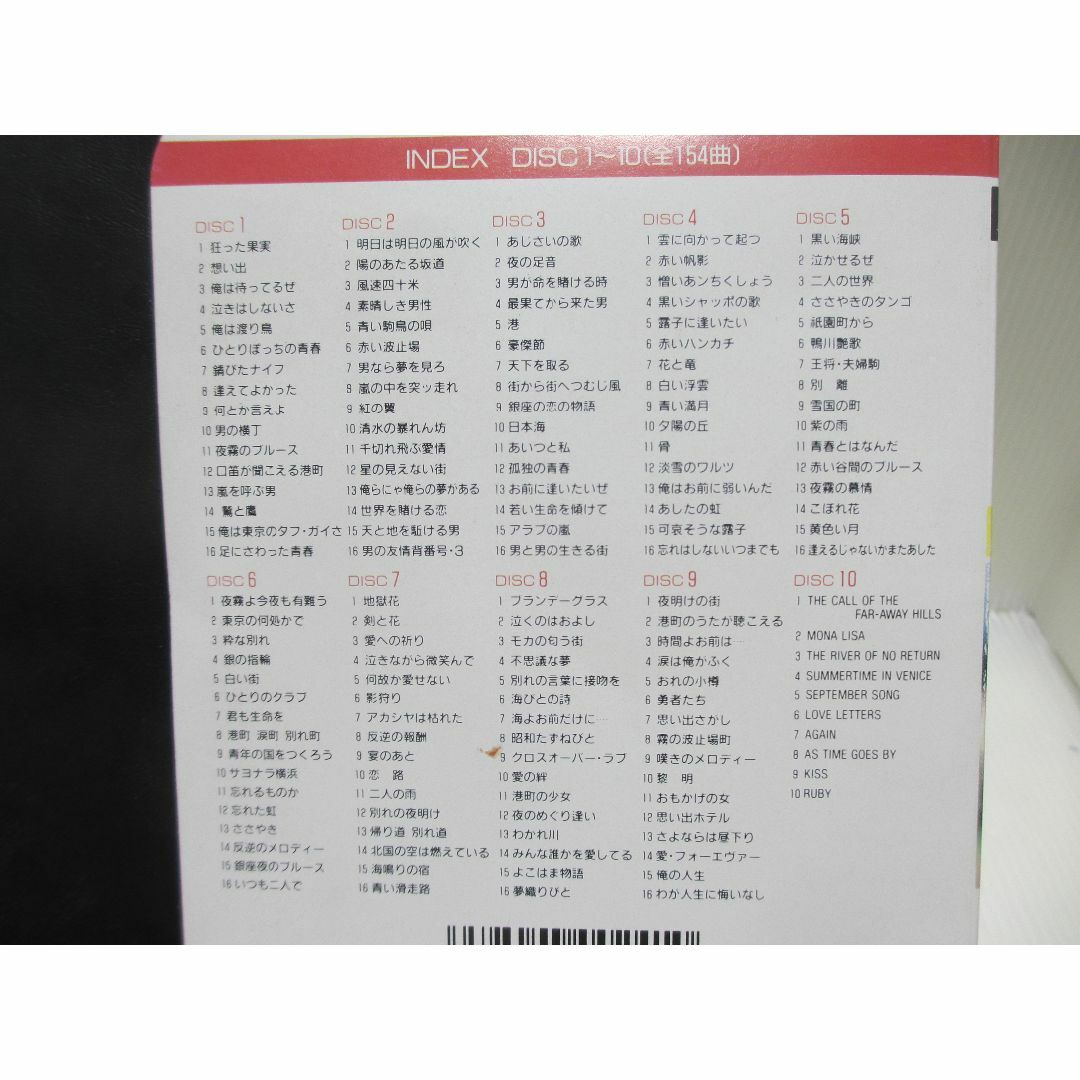 INDEX DISC1〜10(全154曲)
DISC 1
1 狂った果実
2 想い出
3 俺は待ってるぜ
4 泣きはしないさ
5 俺は渡り鳥
6 ひとりぼっちの青春
7 錆びたナイフ
8 逢えてよかった
9 何とか言えよ
10 男の横丁
11 夜霧のブルース
12 口笛が聞こえる港町
13 嵐を呼ぶ男
14 鷲と鷹
15 俺は東京のタフ・ガイさ
16 足にさわった青春
DISC 2
1 明日は明日の風が吹く
2 陽のあたる坂道
3 風速四十米
4 素晴しき男性
5 青い駒鳥の唄
6 赤い波止場
7 男なら夢を見ろ
8 嵐の中を突ッ走れ
9 紅の翼
10 清水の暴れん坊
11 千切れ飛ぶ愛情
12 星の見えない街
13 俺らにゃ俺らの夢がある
14 世界を賭ける恋
15 天と地を駈ける男
16 男の友情背番号・3
DISC 3
1 あじさいの歌
2 夜の足音
3 男が命を賭ける時
4 最果てから来た男
5 港
6 豪傑節
7 天下を取る
8 街から街へつむじ風
9 銀座の恋の物語
10 日本海
11 あいつと私
12 孤独の青春
13 お前に逢いたいぜ
14 若い生命を傾けて
15 アラブの嵐
16 男と男の生きる街
DISC 4
1 雲に向かって起つ
2 赤い帆影
3 憎いあンちくしょう
4 黒いシャッポの歌
5 露子に逢いたい
6 赤いハンカチ
7 花と竜
8 白い浮雲
9 青い満月
10 夕陽の丘
11 骨
12 淡雪のワルツ
13 俺はお前に弱いんだ
14 あしたの虹
15 可哀そうな露子
16 忘れはしないいつまでも
DISC 5
1 黒い海峡
2 泣かせるぜ
3 二人の世界
4 ささやきのタンゴ
5 祇園町から
6 鴨川艶歌
7 王将・夫婦駒
8 別 離
9 雪国の町
10 紫の雨
11 青春とはなんだ
12 赤い谷間のブルース
13 夜霧の慕情
14 こぼれ花
15 黄色い月
16 逢えるじゃないかまたあした
DISC 6
1 夜霧よ今夜も有難う
2 東京の何処かで
3 粋な別れ
4 銀の指輪
5 白い街
6 ひとりのクラブ
7 君も生命を
8 港町 涙町 別れ町
9 青年の国をつくろう
10 サヨナラ横浜
11 忘れるものか
12 忘れた虹
13 ささやき
14 反逆のメロディー
15 銀座夜のブルース
16 いつも二人で
DISC 7
1 地獄花
2 剣と花
3 愛への祈り
4 泣きながら微笑んで
5 何故か愛せない
6 影狩り
7 アカシヤは枯れた
8 反逆の報酬
9 宴のあと
10 恋 路
11 二人の雨
12 別れの夜明け
13 帰り道 別れ道
14 北国の空は燃えている
15 海鳴りの宿
16 青い滑走路
DISC 8
1 ブランデーグラス
2 泣くのはおよし
3 モカの匂う街
4 不思議な夢
5 別れの言葉に接吻を
6 海びとの詩
7 海よお前だけに…
8 昭和たずねびと
9 クロスオーバー・ラブ
10 愛の絆
11 港町の少女
12 夜のめぐり逢い
13 わかれ川
14 みんな誰かを愛してる
15 よこはま物語
16 夢織りびと
DISC 9
1 夜明けの街
2 港町のうたが聴こえる
3 時間よお前は…
4 涙は俺がふく
5 おれの小樽
6 勇者たち
7 思い出さがし
8 霧の波止場町
9 嘆きのメロディー
10 黎 明
11 おもかげの女
12 思い出ホテル
13 さよならは昼下り
14 愛・フォーエヴァー
15 俺の人生
16 わが人生に悔いなし
DISC 10
1 THE CALL OF THE
FAR-AWAY HILLS
2 MONA LISA
3 THE RIVER OF NO RETURN
4 SUMMERTIME IN VENICE
5 SEPTEMBER SONG
6 LOVE LETTERS
7 AGAIN
8 AS TIME GOES BY
9 KISS
10 RUBY